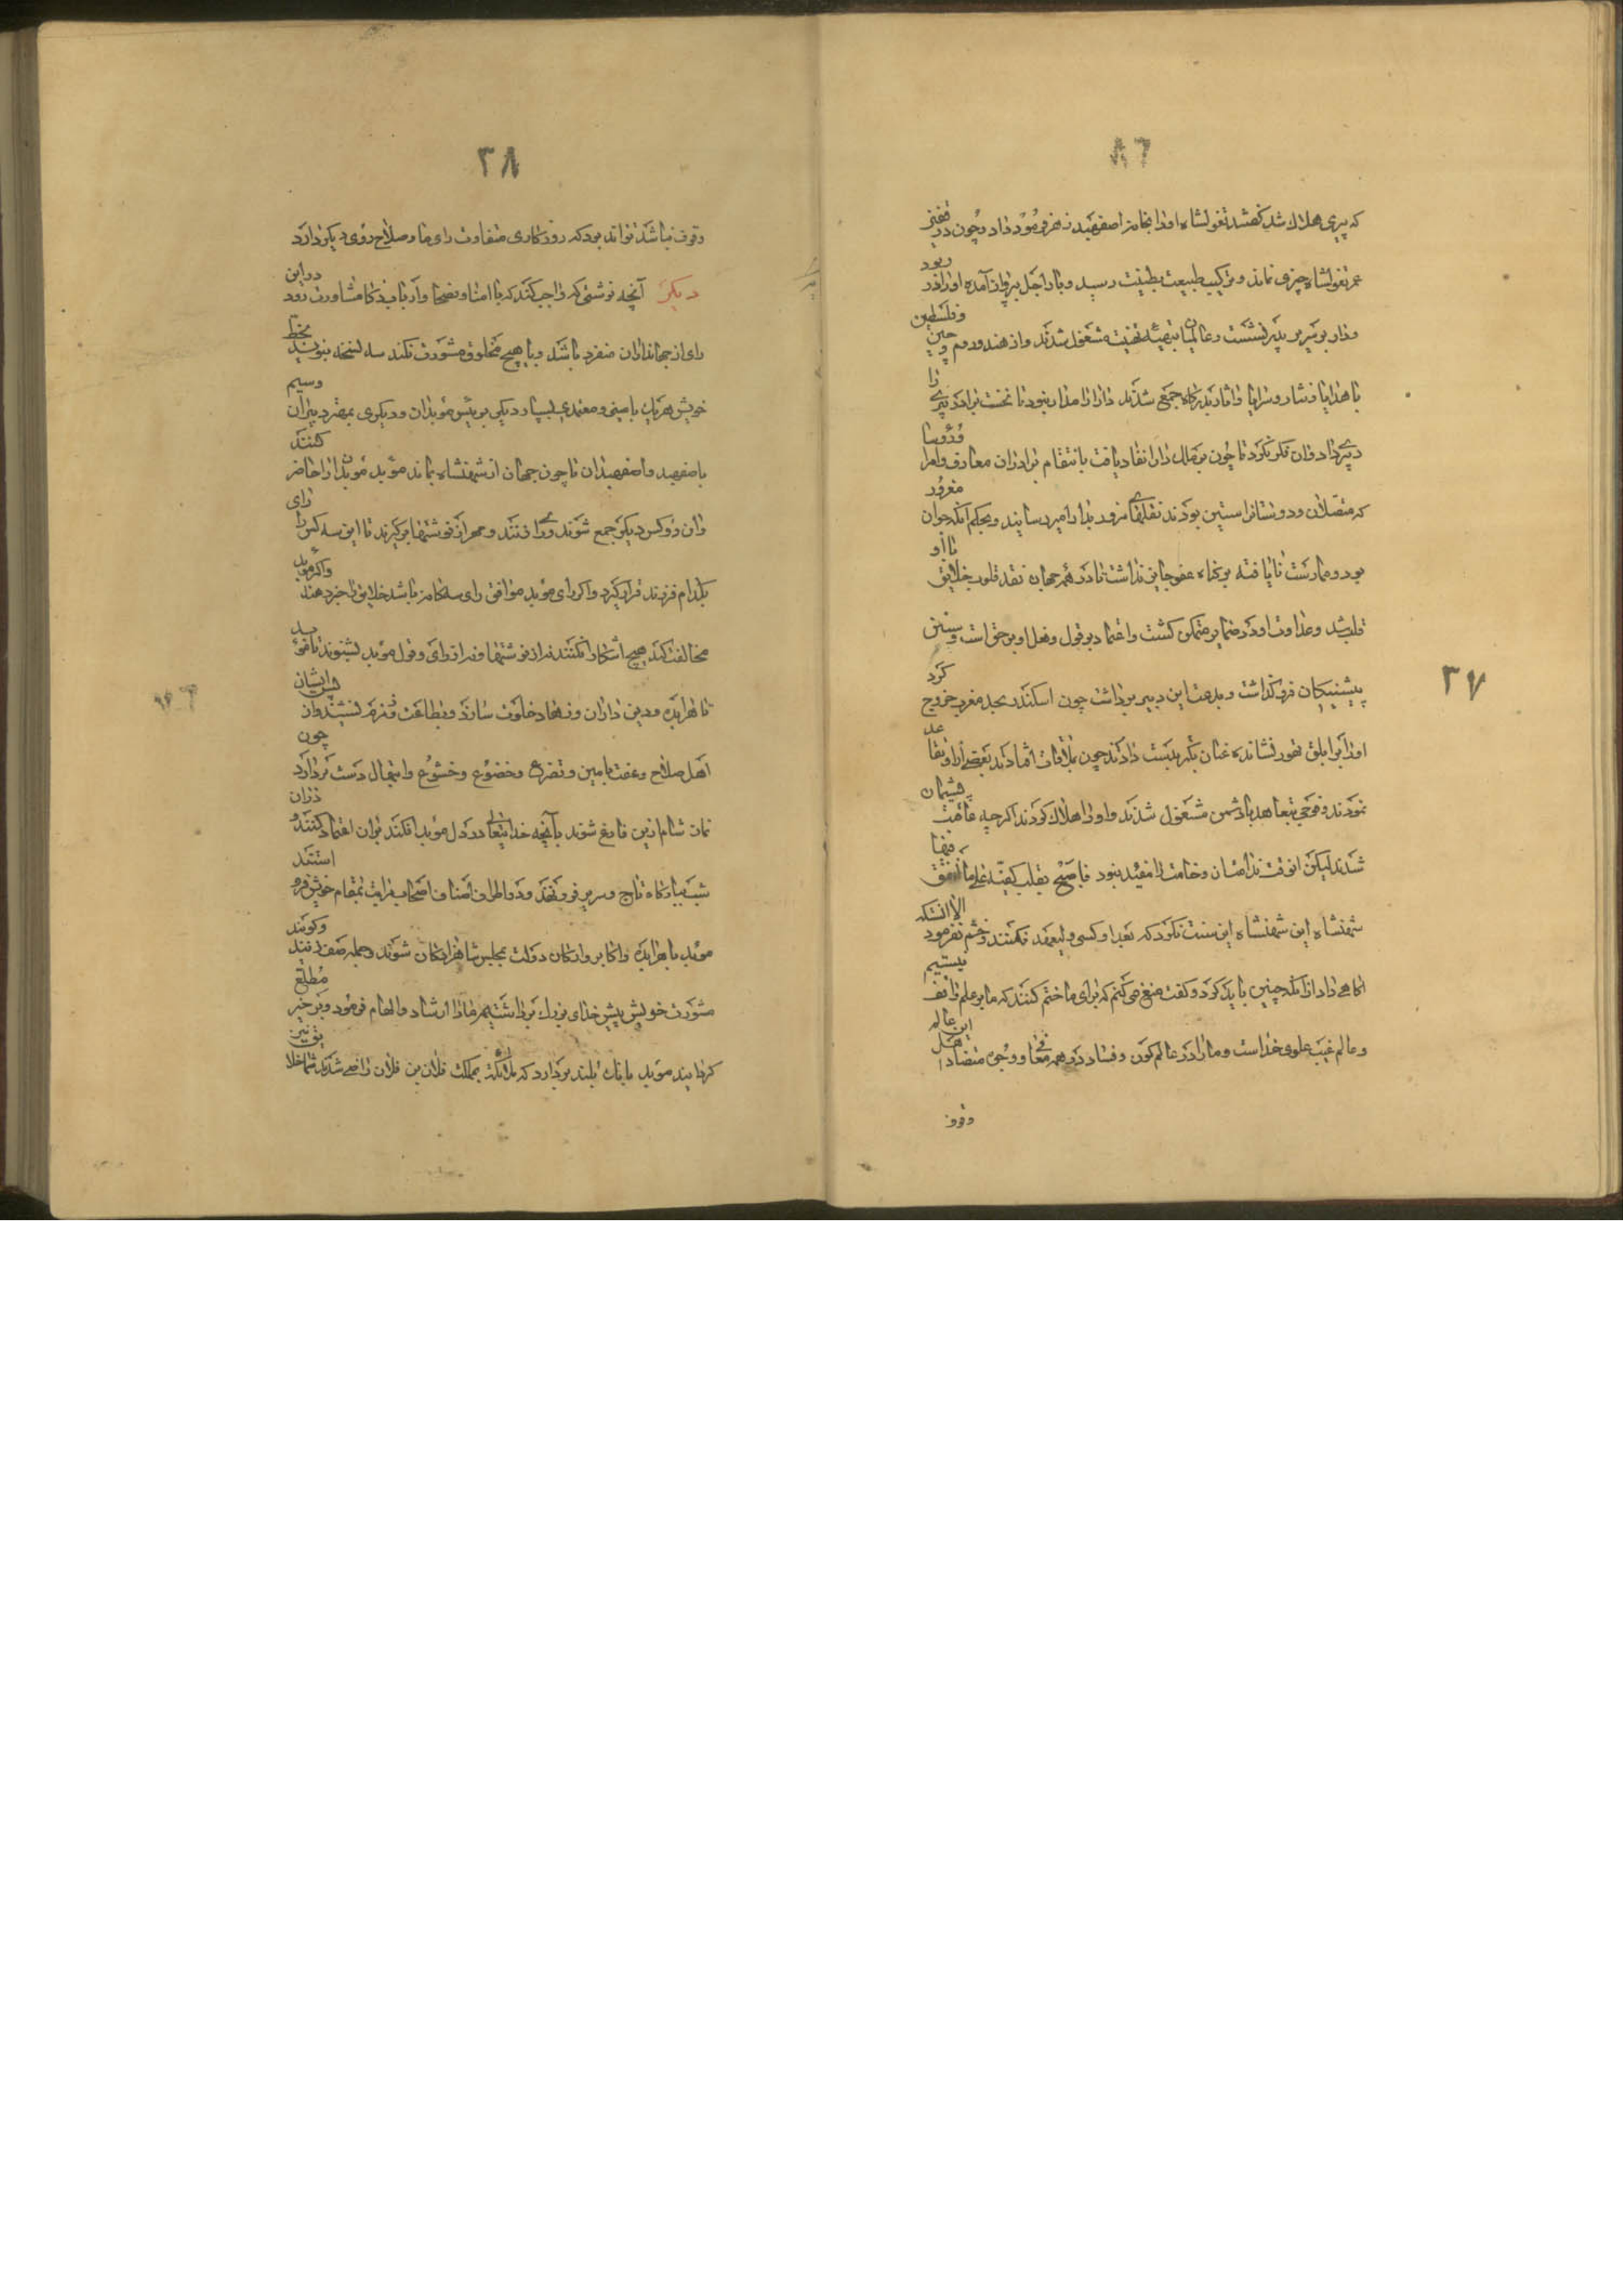 ٨٦
٣٧
که بیری هلاک شد کفشد تغولشاه اورا بخانه اصفهبد زهر فرمود داد و چون در فغیر
عمر تغولشاه چیزی نماند و ترکیب طبیعت بطینت رسید و باد اجل بپرواز آمده اورا در ربود
و دارا بر سریر پدر نشست و عالمیان بتهنیه تهنیت مشغول شدند و از هند و روم و چین و فلسطین
با هدایا و نثار و سرایا و آثار بدرگاه جمع شدند دارا را مدار نبود تا نخست برادر بیری را
دبیری داد و ان فکر نکرد تا چون بر ملک دارا نفاد یافت بانتقام برادر ان معارف و امرا و رؤسا
که متصلان و دوستان راستین بودند نقلها مزور بدارا میرسانید و بحکم آنکه جوان مغرور
بود و ممارست نایافته بر گناه عفو جایز نداشت تا در همه جهان نقد قلوب خلایق با او
قلب شد و عداوت او در ضمایر متمکن کشت و اعتماد بر قول و فعل او برخاست و سنن
پیشینیکان فرو گذاشت و بدعت این دبیر برداشت چون اسکندر بحد مغرب خروج کرد
او را بر ابلق تهور نشانده عنان بکبر بدست دادند چون بملاقات افتادند بعضی ازو تقاعد
نمودند و فوجی بتعاهد با دشمن مشغول شدند و او را هلاک کردند اگرچه عاقبت پشیمان
شدند لیکن انوقت ندامت و خامت را مفید نبود فاصبح یقلب کفیه علی ما انفق فیها
شهنشاه این شهنشاه این سنت نکرد که بعد او کسی ولیعهد نکنند و ختم نفرمود الا انکه
آگاهی داد از آنکه چنین باید کرد و گفت منع می کنم که برای ما ختم کنند که ما بر علم واقف نیستیم
و عالم غیب علوی خداست و ما را در عالم کون و فساد در همه معنی و وجوه متضاد اهل این عالم
وقوف
٣٨
وقوف نباشد تواند بود که روزگاری متفاوت رای ما و صلاح روی دیگر دارد
دیگر آنچه نوشتی که واجب کند که با امنا و نصحا و ارباب ذکا مشاورت رود درین
رای از جهانداران منفرد باشد و با هیچ مخلوق مشورت نکند سه نسخه بنویسد بخط
خویش هر یک بامینی و معتمدی بسپارد یکی بریئس موبدان و دیگری بمهتر دبیران و سیم
باصفهبد اصفهبدان تا چون جهان از شهنشاه بماند موبد موبدان را حاضر کنند
وان دو کس دیگر جمع شوند و رای زنند و مهر از نوشتها برگیرند تا این سه کس را رای
بکدام فرزند قرار گیرد و اگر رای موبد موافق رای سه گانه باشد خلایق را خبر دهند و اگر موبد
مخالفت کند هیچ آشکارا نکنند نه از نوشتها و نه از رای و قول موبد بشنوند تا موبد
تنها با هرابده و دین داران و زهاد خلوت سازد و بطاعت و زمزم نشیند و از پس ایشان
اهل صلاح و عفت بامین و تضرع و خضوع و خشوع و ابتهال دست بردارد چون
نماز شام ازین فارغ شوند بآنچه خدایتعالی در دل موبد افکند بران اعتماد کنند و دران
شب ببارگاه تاج و سریر فرو نهند و دو اطراف اصناف اصحاب مراتب بمقام خویش فرو استند
موبد با هرابده و اکابر و ارکان دولت بمجلس شاهزادگان شوند و جمله صف زنند و کویند
مشورت خویش پیش خدای بزرک برداشتیم مارا ارشاد و الهام فرمود و بر خیر مطلع
گردانید موبد بانک بلند بردارد که ملائکه بملک فلان بن فلان راضی شدند شما خلایق نیز